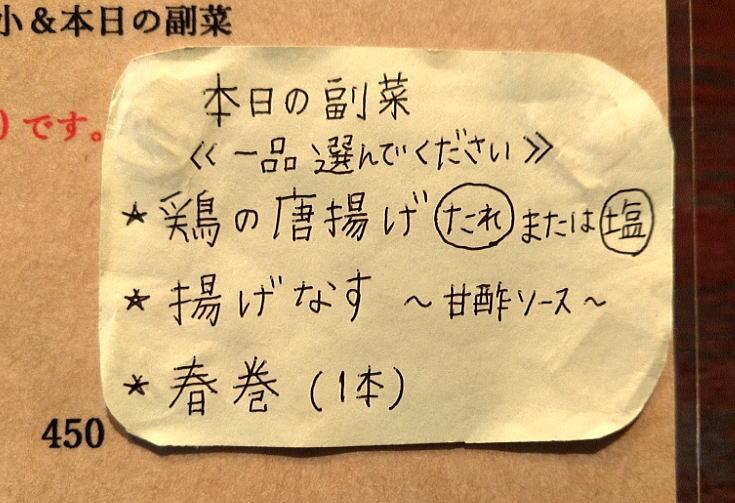 小&本日の副菜
)です。
本日の副菜
≪一品選んでください≫
★鶏の唐揚げ たれ または 塩
★揚げなす ～甘酢ソース～
★春巻(1本)
450